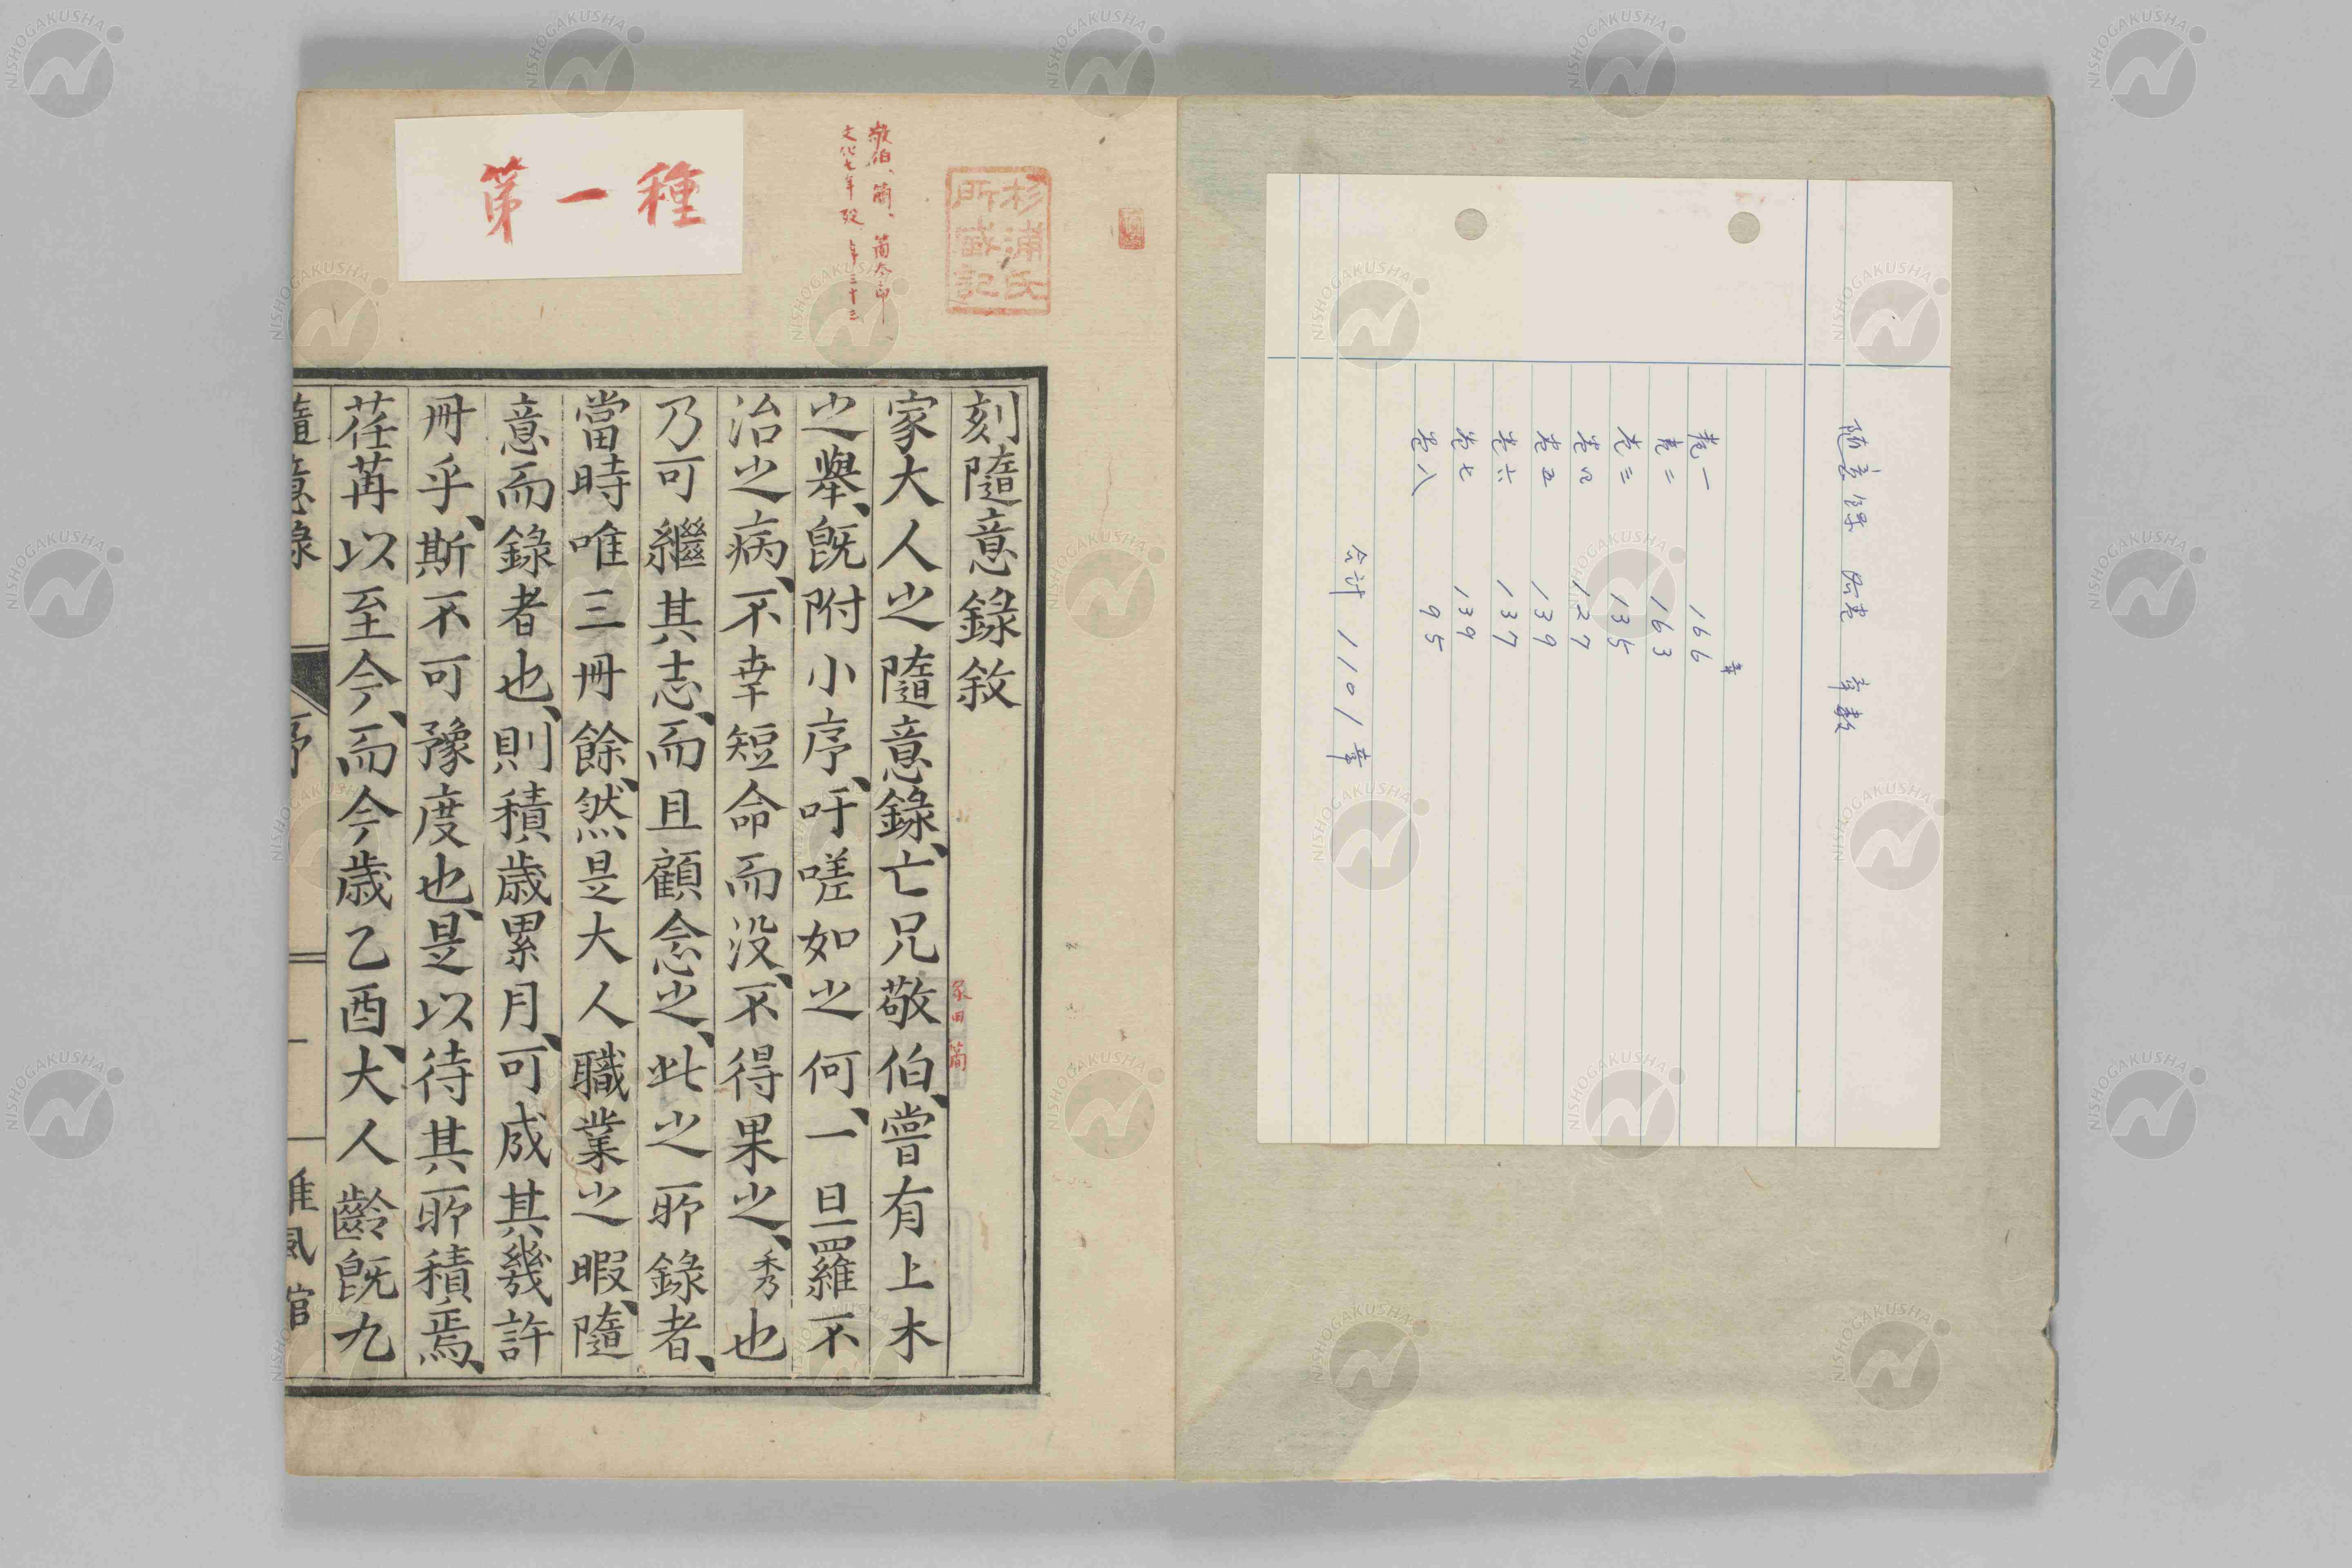 随意録 冢田 章数
章
巻一 166
巻二 163
巻三 135
巻四 127
巻五 139
巻六 137
巻七 139
巻八 95
合計 1101章
杉浦氏
所蔵記
敬伯、簡、
文化七年歿 年三十三
第一種
刻隨意錄敘
冢田 簡
家大人之隨意錄、亡兄敬伯、嘗有上木
之舉、旣附小序、吁嗟如之何、一旦羅不
治之病、不幸短命而没、不得果之、秀也
乃可繼其志、而且顧念之、此之所錄者、
當時唯三冊餘、然是大人職業之暇、隨
意而錄者也、則積歳累月、可成其幾許
冊乎、斯不可豫度也、是以待其所積焉、
荏苒以至今、而今歳乙酉、大人齡旣九
隨意錄 序 一 雅風館
NISHOGAKUSHA